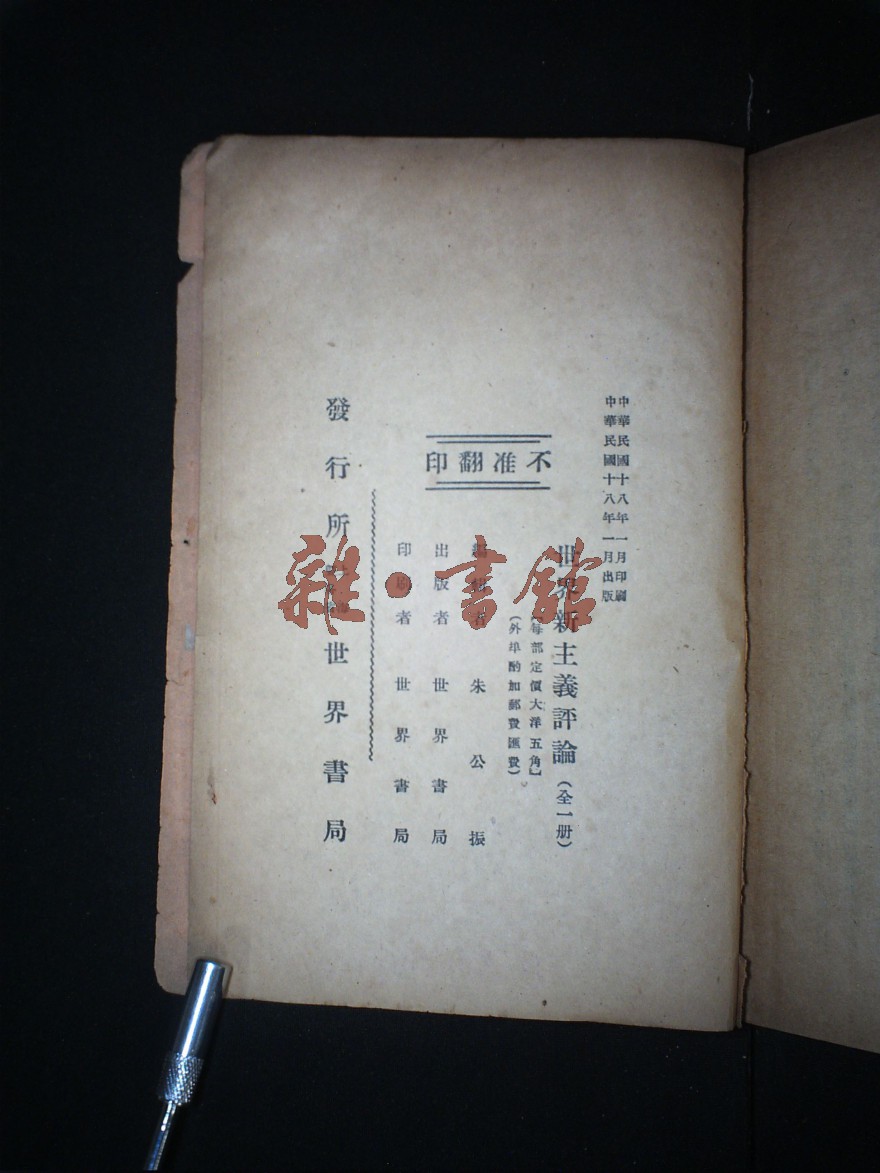 中華民國十八年一月印刷
中華民國十八年一月出版
世界新主義評論（全一册）
【每部定價大洋五角】
（外埠酌加郵費匯費）
不准翻印
者 朱公振
出版者 世界書局
印刷者 世界書局
發行所 世界書局
雜·書館